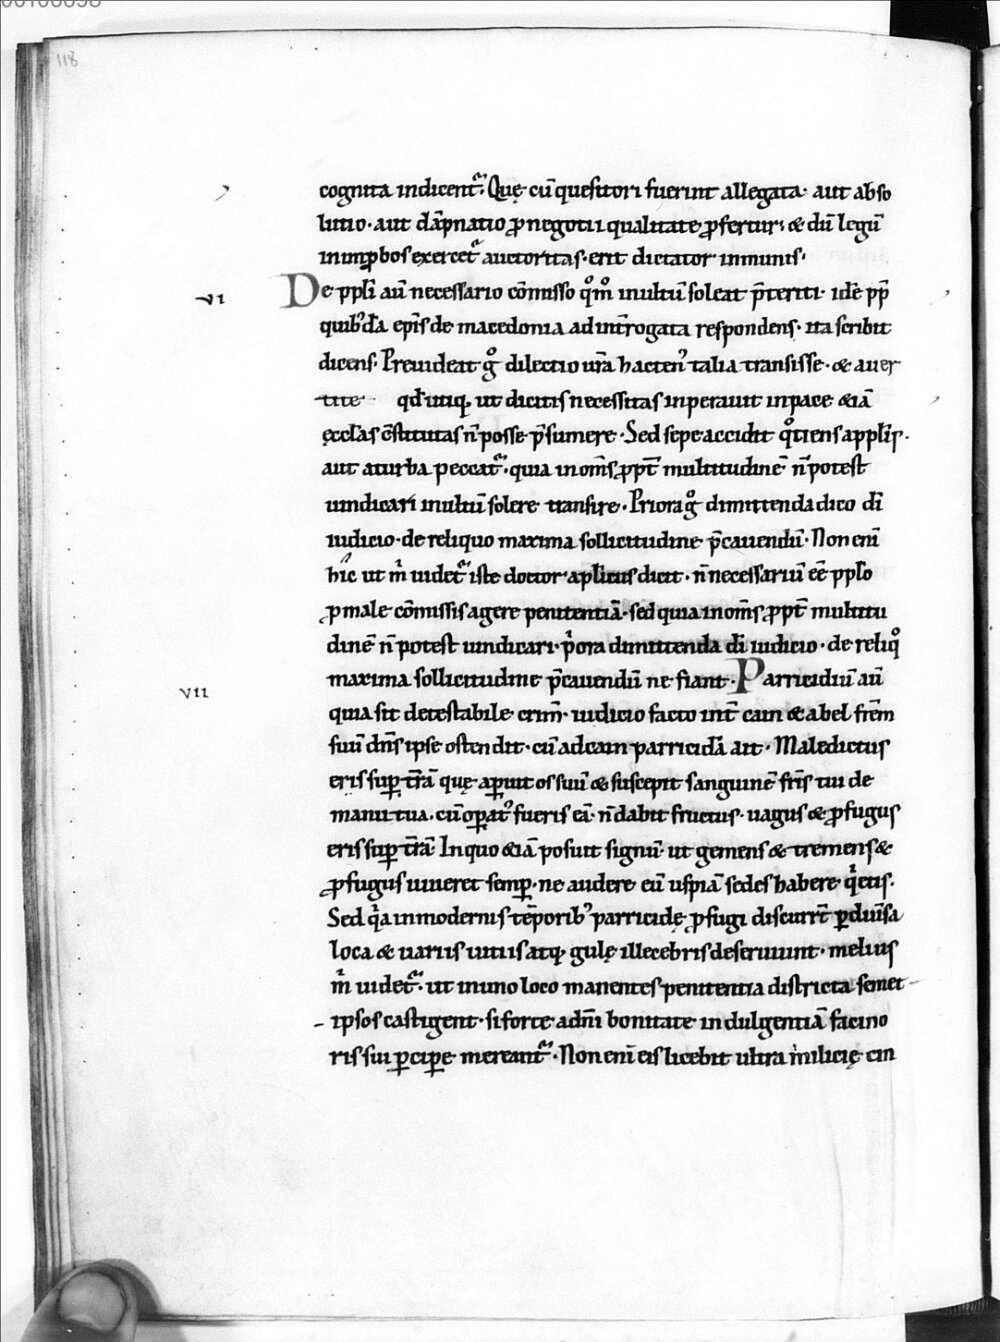 118
cognita indicent᷑. Quę cū quesitori fuerint allegata· aut abso
lutio· aut dāpnatio ꝓ negotii qualitate ꝓfertur; & dū legū
in inꝓbos exercet᷑ auctoritas· erit dictator inmunis·
VI
De ppli aū necessario cōmisso qͦm̄ inultū soleat p̄teriti· idē pp̄
quibꝰdā ep̄is de macedonia ad int̄rogata respondens· ita scribit
dicens· Prevideat gͦ dilectio ur̄a hactenꝰ talia transisse· & auer
tite qd̄ utiqꝫ ut dicitis necessitas inperauit in pace &iā
ęccl̄as c̄stitutas n̄ posse p̄sumere· Sed sepe accidit qͦtiens a ppl̄is·
aut a turba peccat᷑· quia in om̄s ꝓpt̄ multitudinē n̄ potest
uindicari inultū solere transire· Priora gͦ dimittenda dico dī
iudicio· de reliquo maxima sollicitudine p̄cauendū· Non enī
hic ut m̄ uidet᷑ iste doctor apl̄icus dicit· n̄ necessariū eē ppl̄o
ꝓ male cōmissis agere penitentiā· sed quia in om̄s ꝓpt̄ multitu
dinē n̄ potest uindicari· pͥora dimittenda dī iudicio· de reliqͦ
maxima sollicitudine p̄cauendū ne fiant· Parricidiū aū
VII
quia sit detestabile crim̄· iudicio facto int̄ cain & abel fr̄em
suū dn̄s ipse ostendit· cū ad cain parricidā ait· Maledictus
eris suꝑ t̄rā quę aꝑuit os suū & suscepit sanguinē fr̄is tui de
manu tua· cū oꝑatꝰ fueris eā· n̄ dabit fructus· uagus & ꝓfugus
eris suꝑ t̄rā· In quo &iā posuit signū· ut gemens & tremens &
ꝓfugus uiueret semꝑ· ne audere eū uspiā sedes habere qͥetis·
Sed qͥa in modernis tēporibꝰ parricidę ꝓfugi discurrt̄ ꝑ diuīsa
loca & uariis uitiis atqꝫ gulę illecebris deseruiunt· melius
m̄ uidet᷑· ut in uno loco manentes penitentia districta semet-
-ipsos castigent· si forte a dn̄i bonitate indulgentiā facino
ris sui ꝑciꝑe mereant᷑· Non enī eis licebit ultra milicię cin